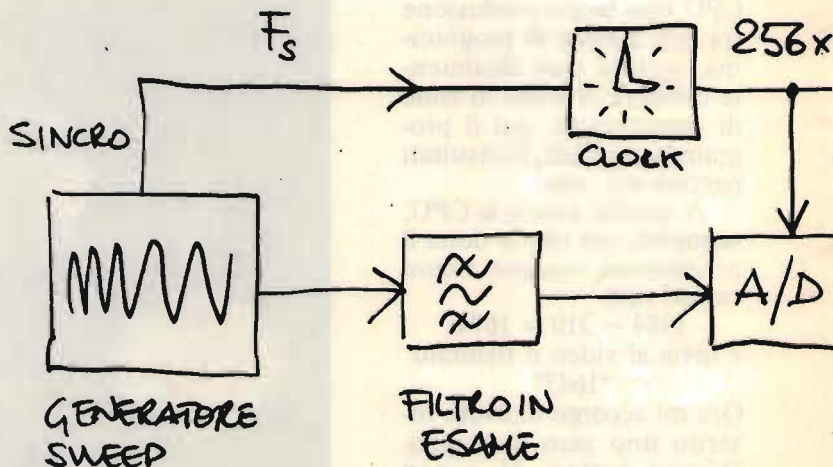 Fs
256x
SINCRO
CLOCK
A/D
GENERATORE
SWEEP
FILTRO IN
ESAME